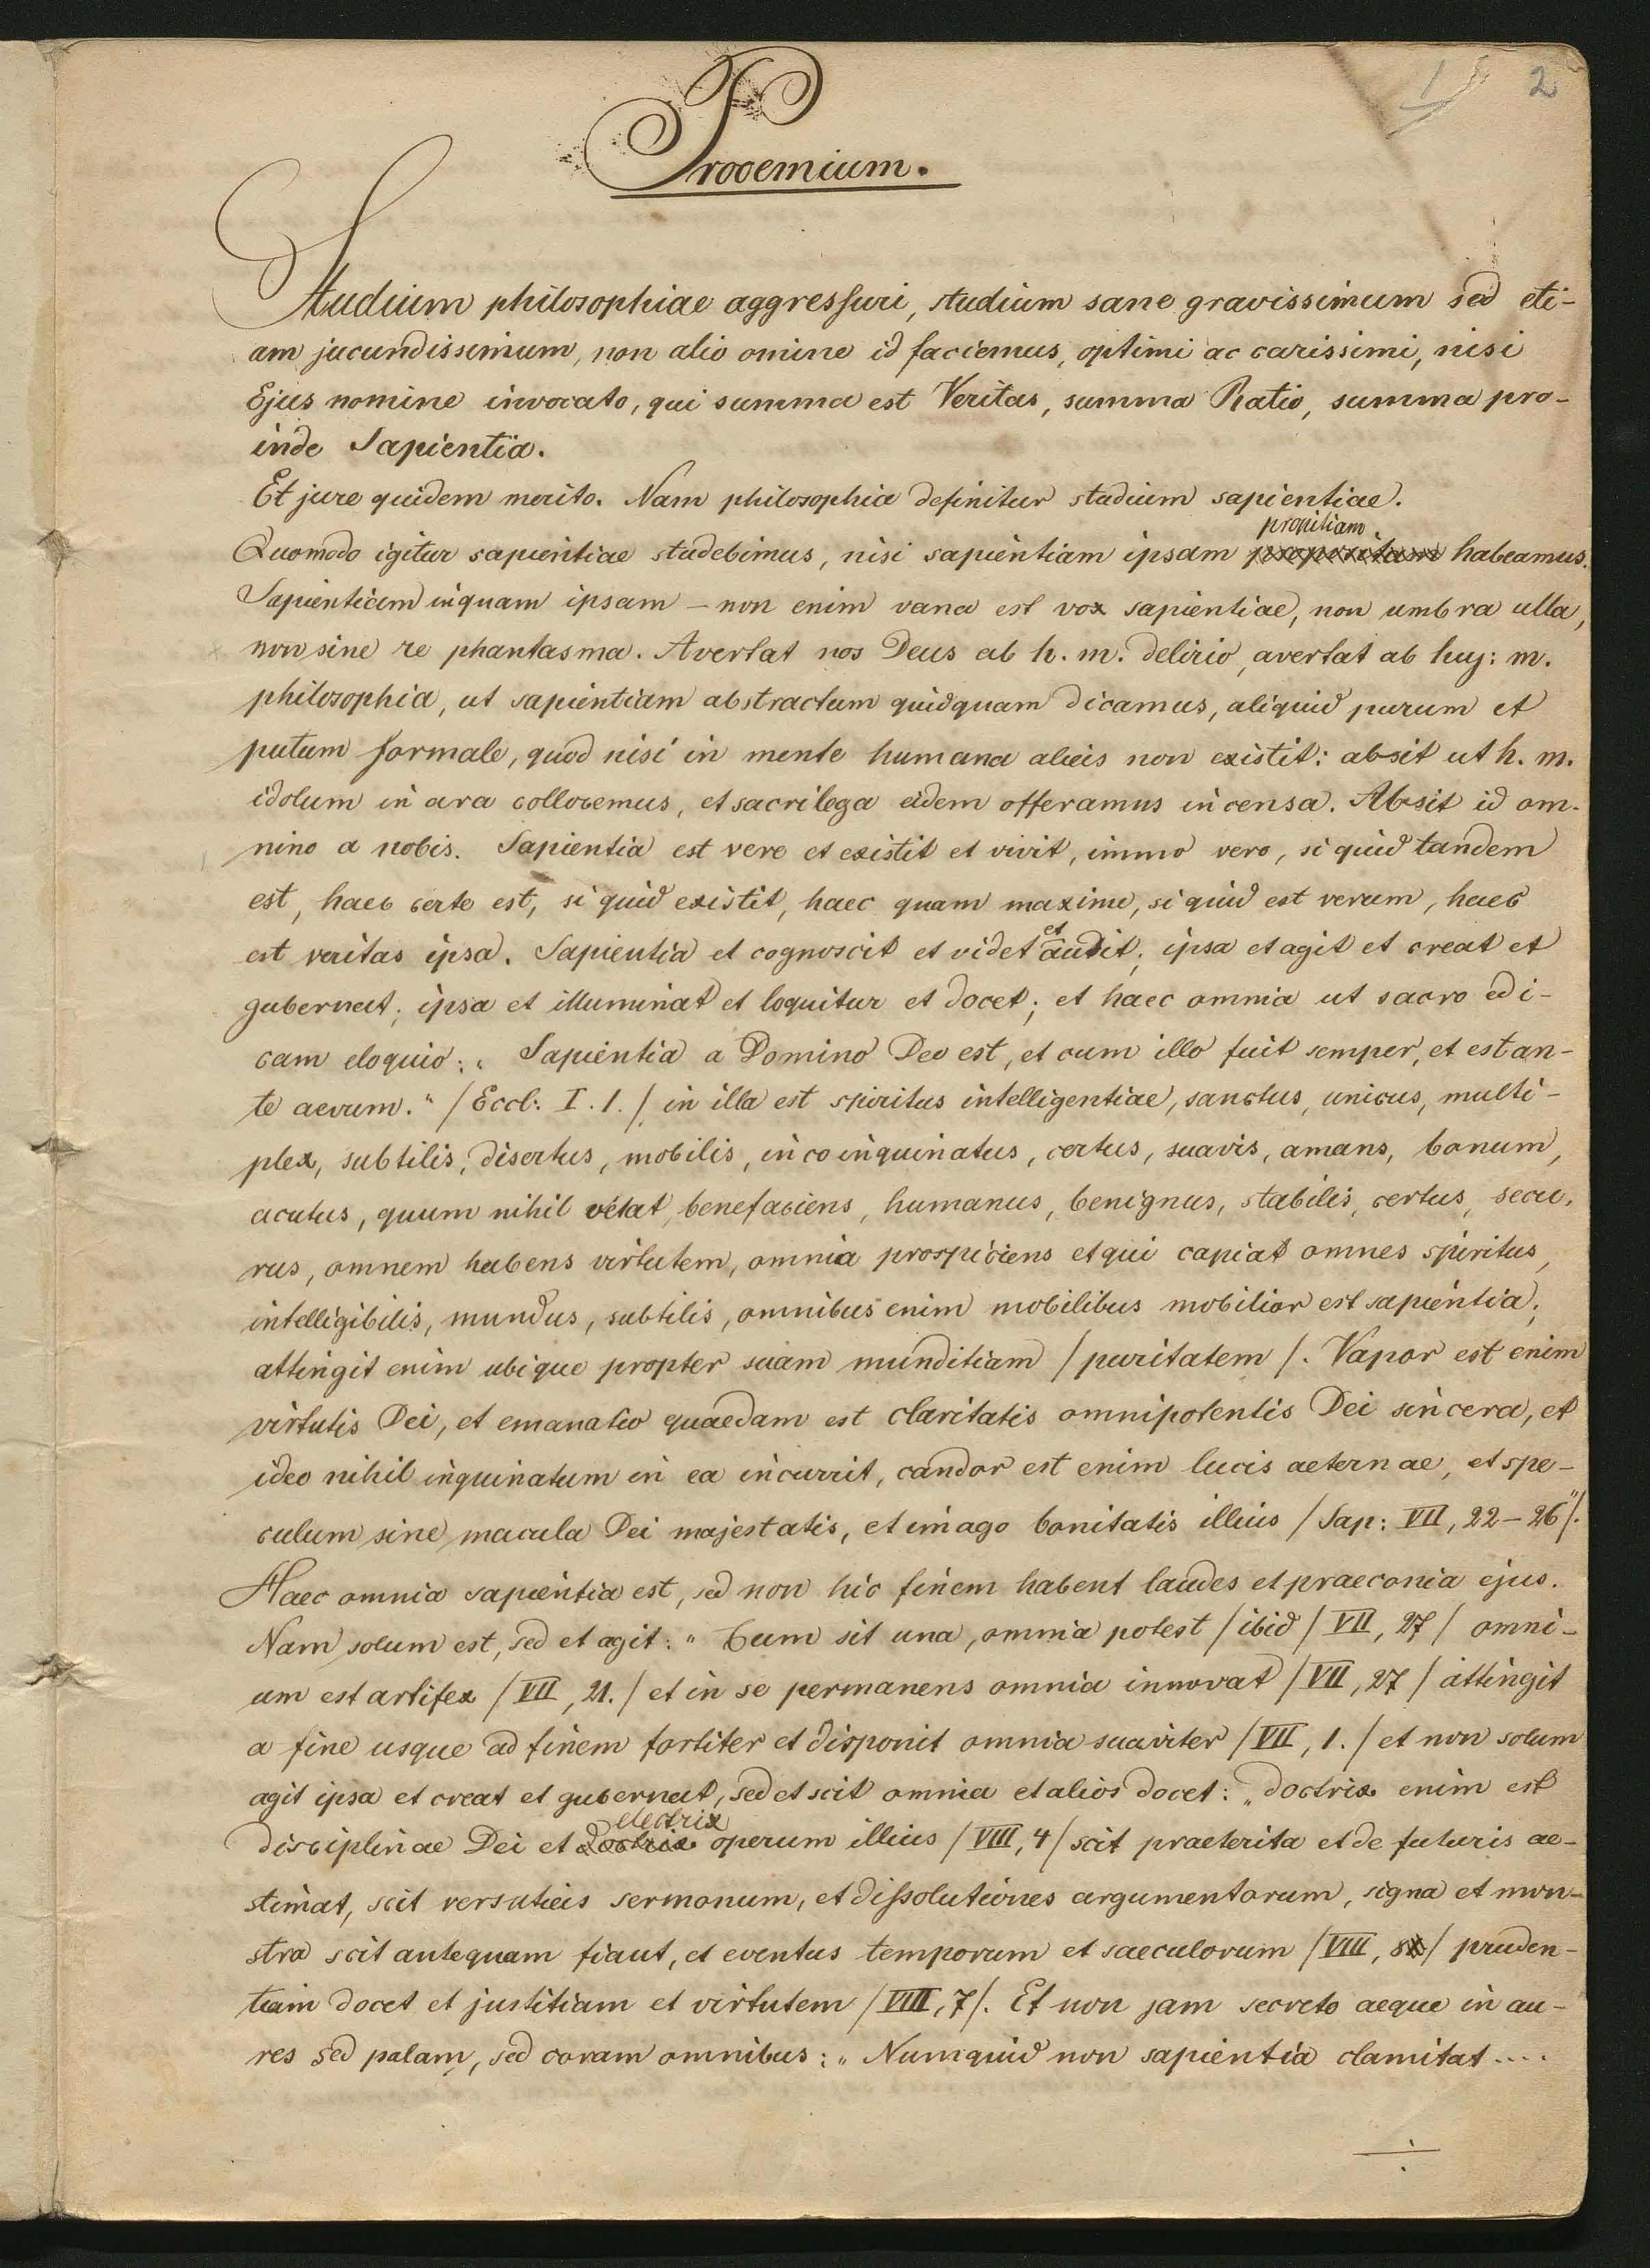 1 2
Prooemium.
Studium philosophiae aggressuri, studium sane gravissimum sed eti-
am jucundissimum, non alio omine id faciemus, optimi ac carissimi, nisi
Ejus nomine invocato, qui summa est Veritas, summa Ratio, summa pro-
inde Sapientia.
Et jure quidem merito. Nam philosophia definitur studium sapientiae.
propitiam
Quomodo igitur sapientiae studebimus, nisi sapientiam ipsam habeamus.
Sapientiam inquam ipsam – non enim vana est vox sapientiae, non umbra ulla,
non sine re phantasma. Avertat nos Deus ab h. m. delirio, avertat ab huj: m.
philosophia, ut sapientiam abstractum quidquam dicamus, aliquid purum et
putum formale, quod nisi in mente humana alicis non existit: absit ut h. m.
idolum in ara collocemus, et sacrilega eidem offeramus incensa. Absit id om-
nino a nobis. Sapientia est vere et existit et vivit, immo vero, si quid tandem
est, haec certe est, si quid existit, haec quam maxime, si quid est verum, haec
est veritas ipsa. Sapientia et cognoscit et videt et audit; ipsa et agit et creat et
gubernat; ipsa et illuminat et loquitur et docet; et haec omnia ut sacro edi-
cam eloquio: „ Sapientia a Domino Deo est, et cum illo fuit semper, et est an-
te aevum." /Eccl: I. 1./ in illa est spiritus intelligentiae, sanctus, unicus, multi-
plex, subtilis, disertus, mobilis, incoinquinatus, certus, suavis, amans, bonum,
acutus, quum nihil vetat, benefaciens, humanus, benignus, stabilis, certus, secu-
rus, omnem habens virtutem, omnia prospiciens et qui capiat omnes spiritus,
intelligibilis, mundus, subtilis, omnibus enim mobilibus mobilior est sapientia;
attingit enim ubique propter suam munditiam /puritatem/. Vapor est enim
virtutis Dei, et emanatio quaedam est claritatis omnipotentis Dei sincera, et
ideo nihil inquinatum in ea incurrit, candor est enim lucis aeternae, et spe-
culum sine macula Dei majestatis, et imago bonitatis illius /Sap: VII, 22–26"/.
Haec omnia sapientia est, sed non hic finem habent laudes et praeconia ejus.
Nam solum est, sed et agit: „ Cum sit una, omnia potest /ibid/ VII, 27/ omni-
um est artifex /VII, 21./ et in se permanens omnia innovat /VII, 27/ attingit
a fine usque ad finem fortiter et disponit omnia suaviter /VII, 1./ et non solum
agit ipsa et creat et gubernat, sed et scit omnia et alios docet: „doctrix enim est
electrix
disciplinae Dei et doctrix operum illius /VIII, 4/ scit praeterita et de futuris ae-
stimat, scit versutiis sermonum, et dissolutiones argumentorum, signa et mon-
stra scit antequam fiant, et eventus temporum et saeculorum /VIII, 8/ pruden-
tiam docet et justitiam et virtutem /VIII, 7/. Et non jam secreto aeque in au-
res sed palam, sed coram omnibus: „ Numquid non sapientia clamitat....